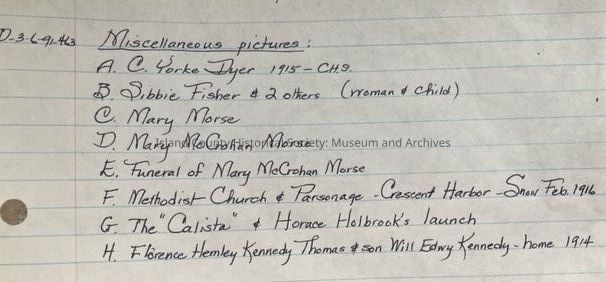 D-3-6-91-463 Miscellaneous pictures:
A. C. Yorke Dyer 1915 - CHS.
B. Sibbie Fisher & 2 others (woman & child)
C. Mary Morse
D. Mary McCrohan Morse
Island County Historical Society: Museum and Archives
E. Funeral of Mary McCrohan Morse
F. Methodist Church & Parsonage - Crescent Harbor - Snow Feb. 1916
G. The "Calista" & Horace Holbrook's launch
H. Florence Hemley Kennedy Thomas & son Will Edwy Kennedy - home 1914